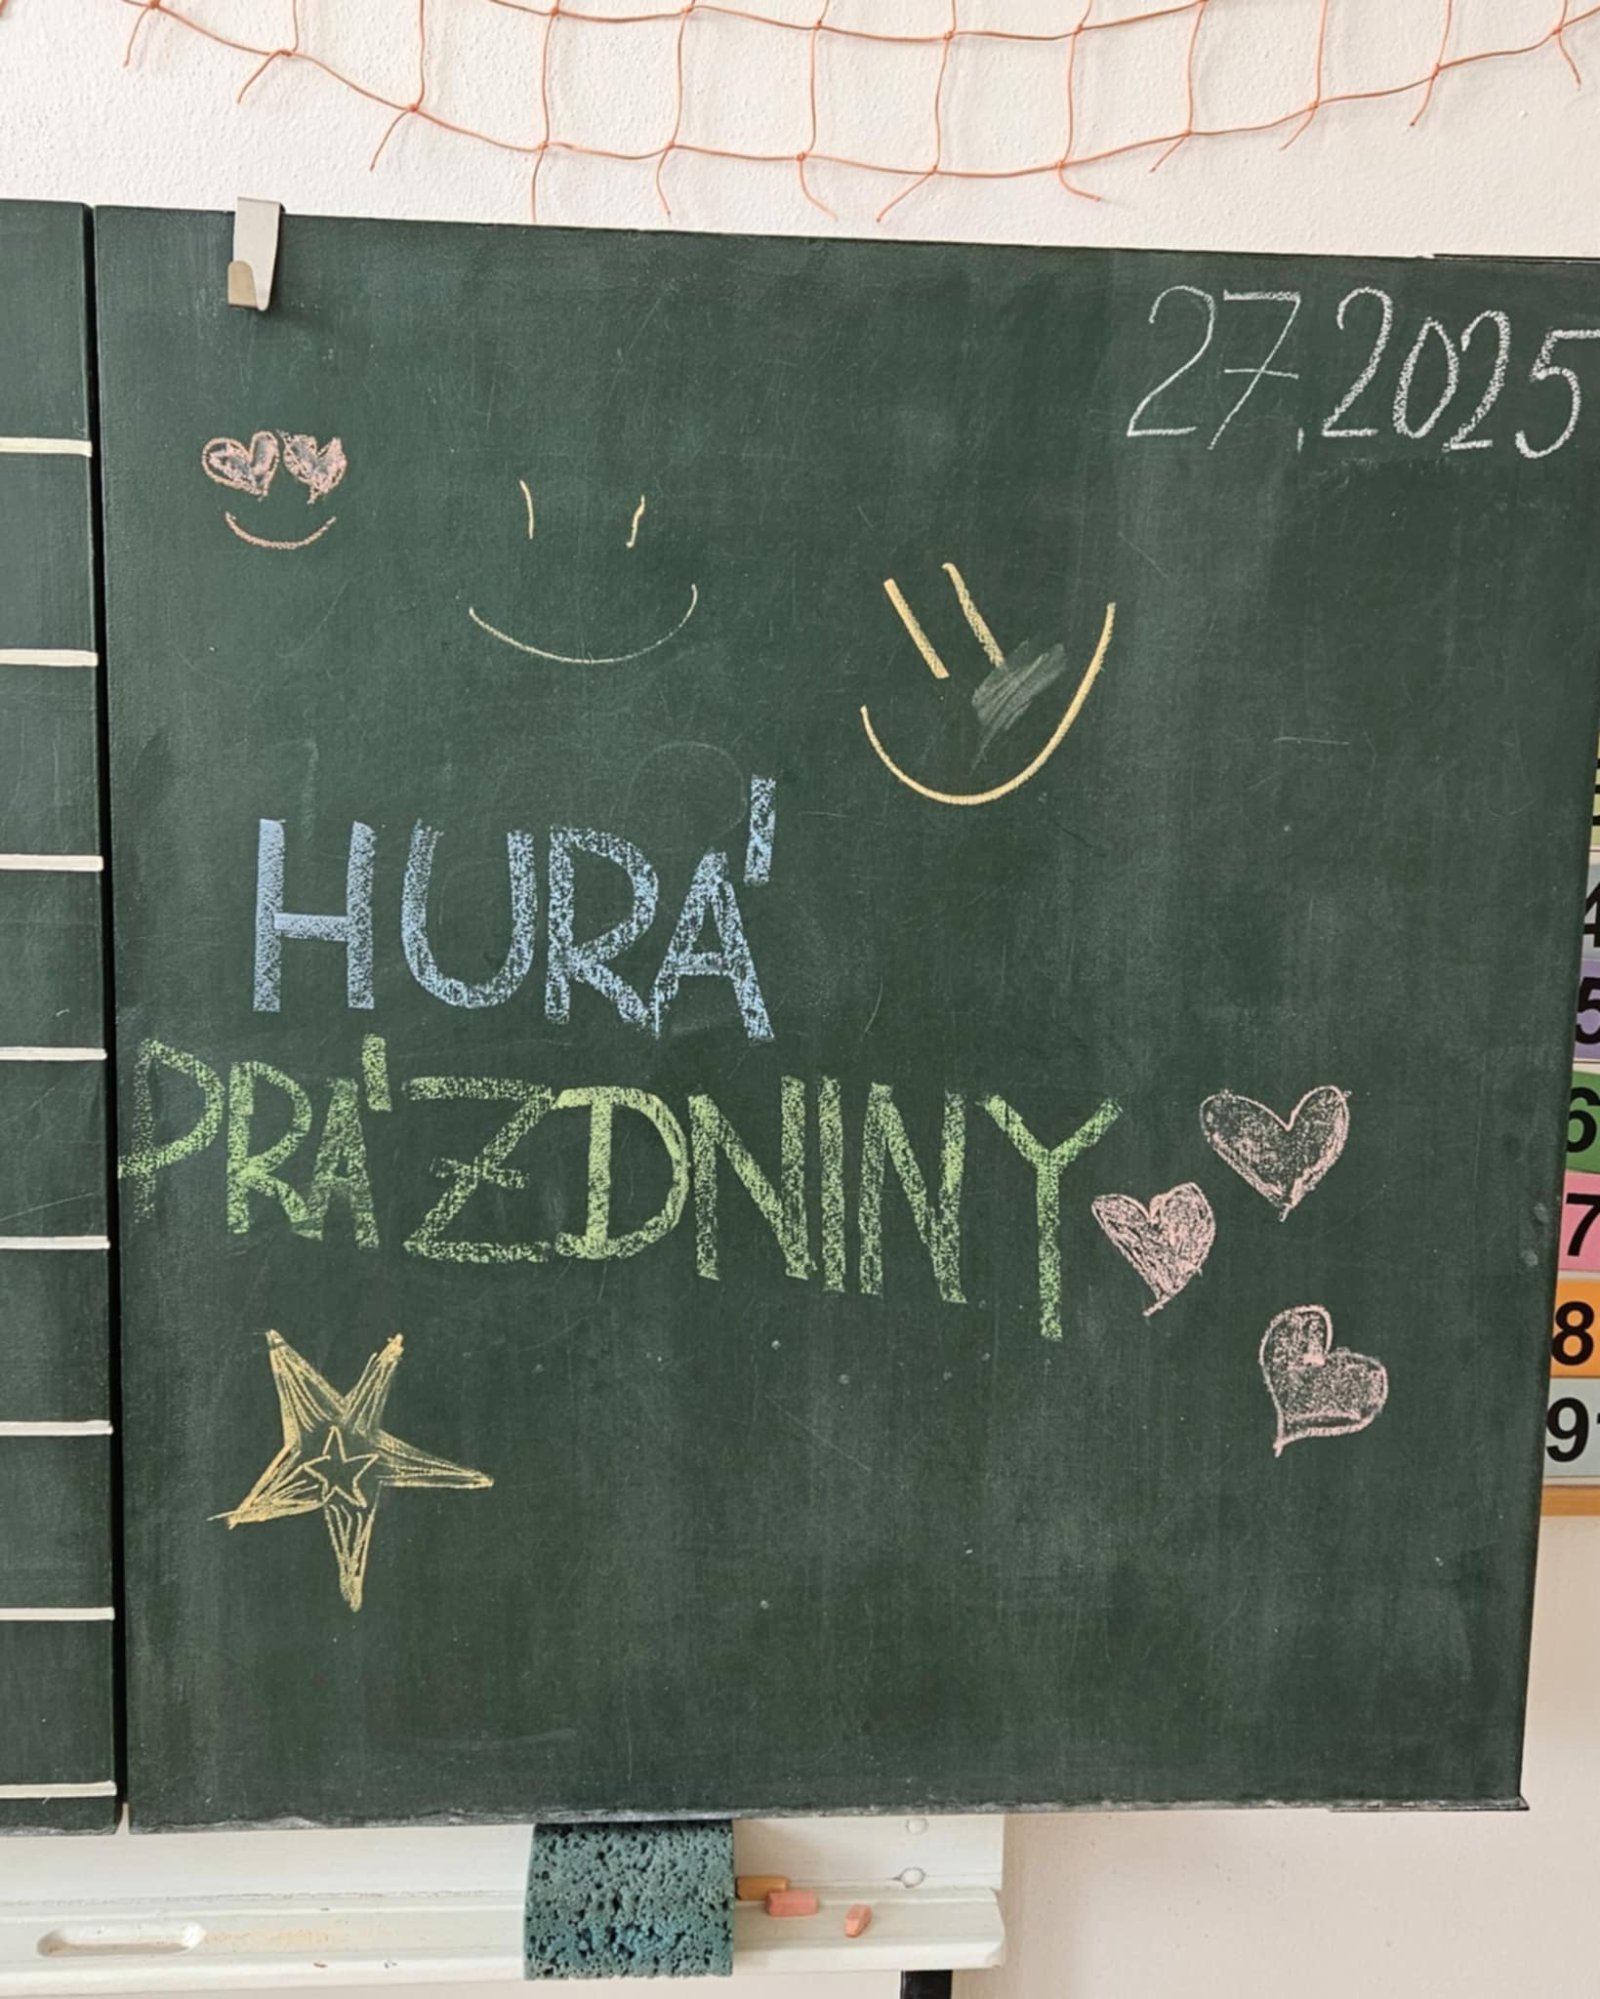 27.2025
HURÁ
PRÁZDNINY
4
5
6
7
8
9